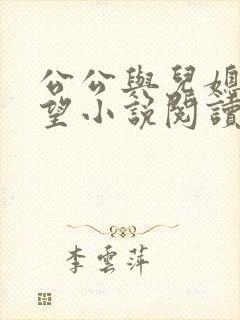 公公與兒媳
望小說閱讀
李雲萍